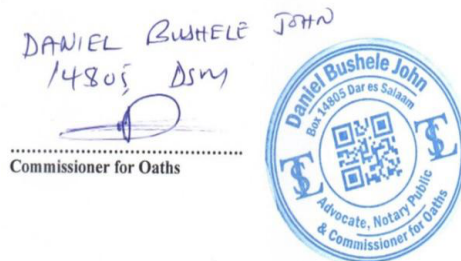 DANIEL BUSHELE JOHN
14805 DSM
Commissioner for Oaths
Daniel Bushele John
Box 14805 Dar es Salaam
TLS
TLS
Advocate, Notary Public
& Commissioner for Oaths